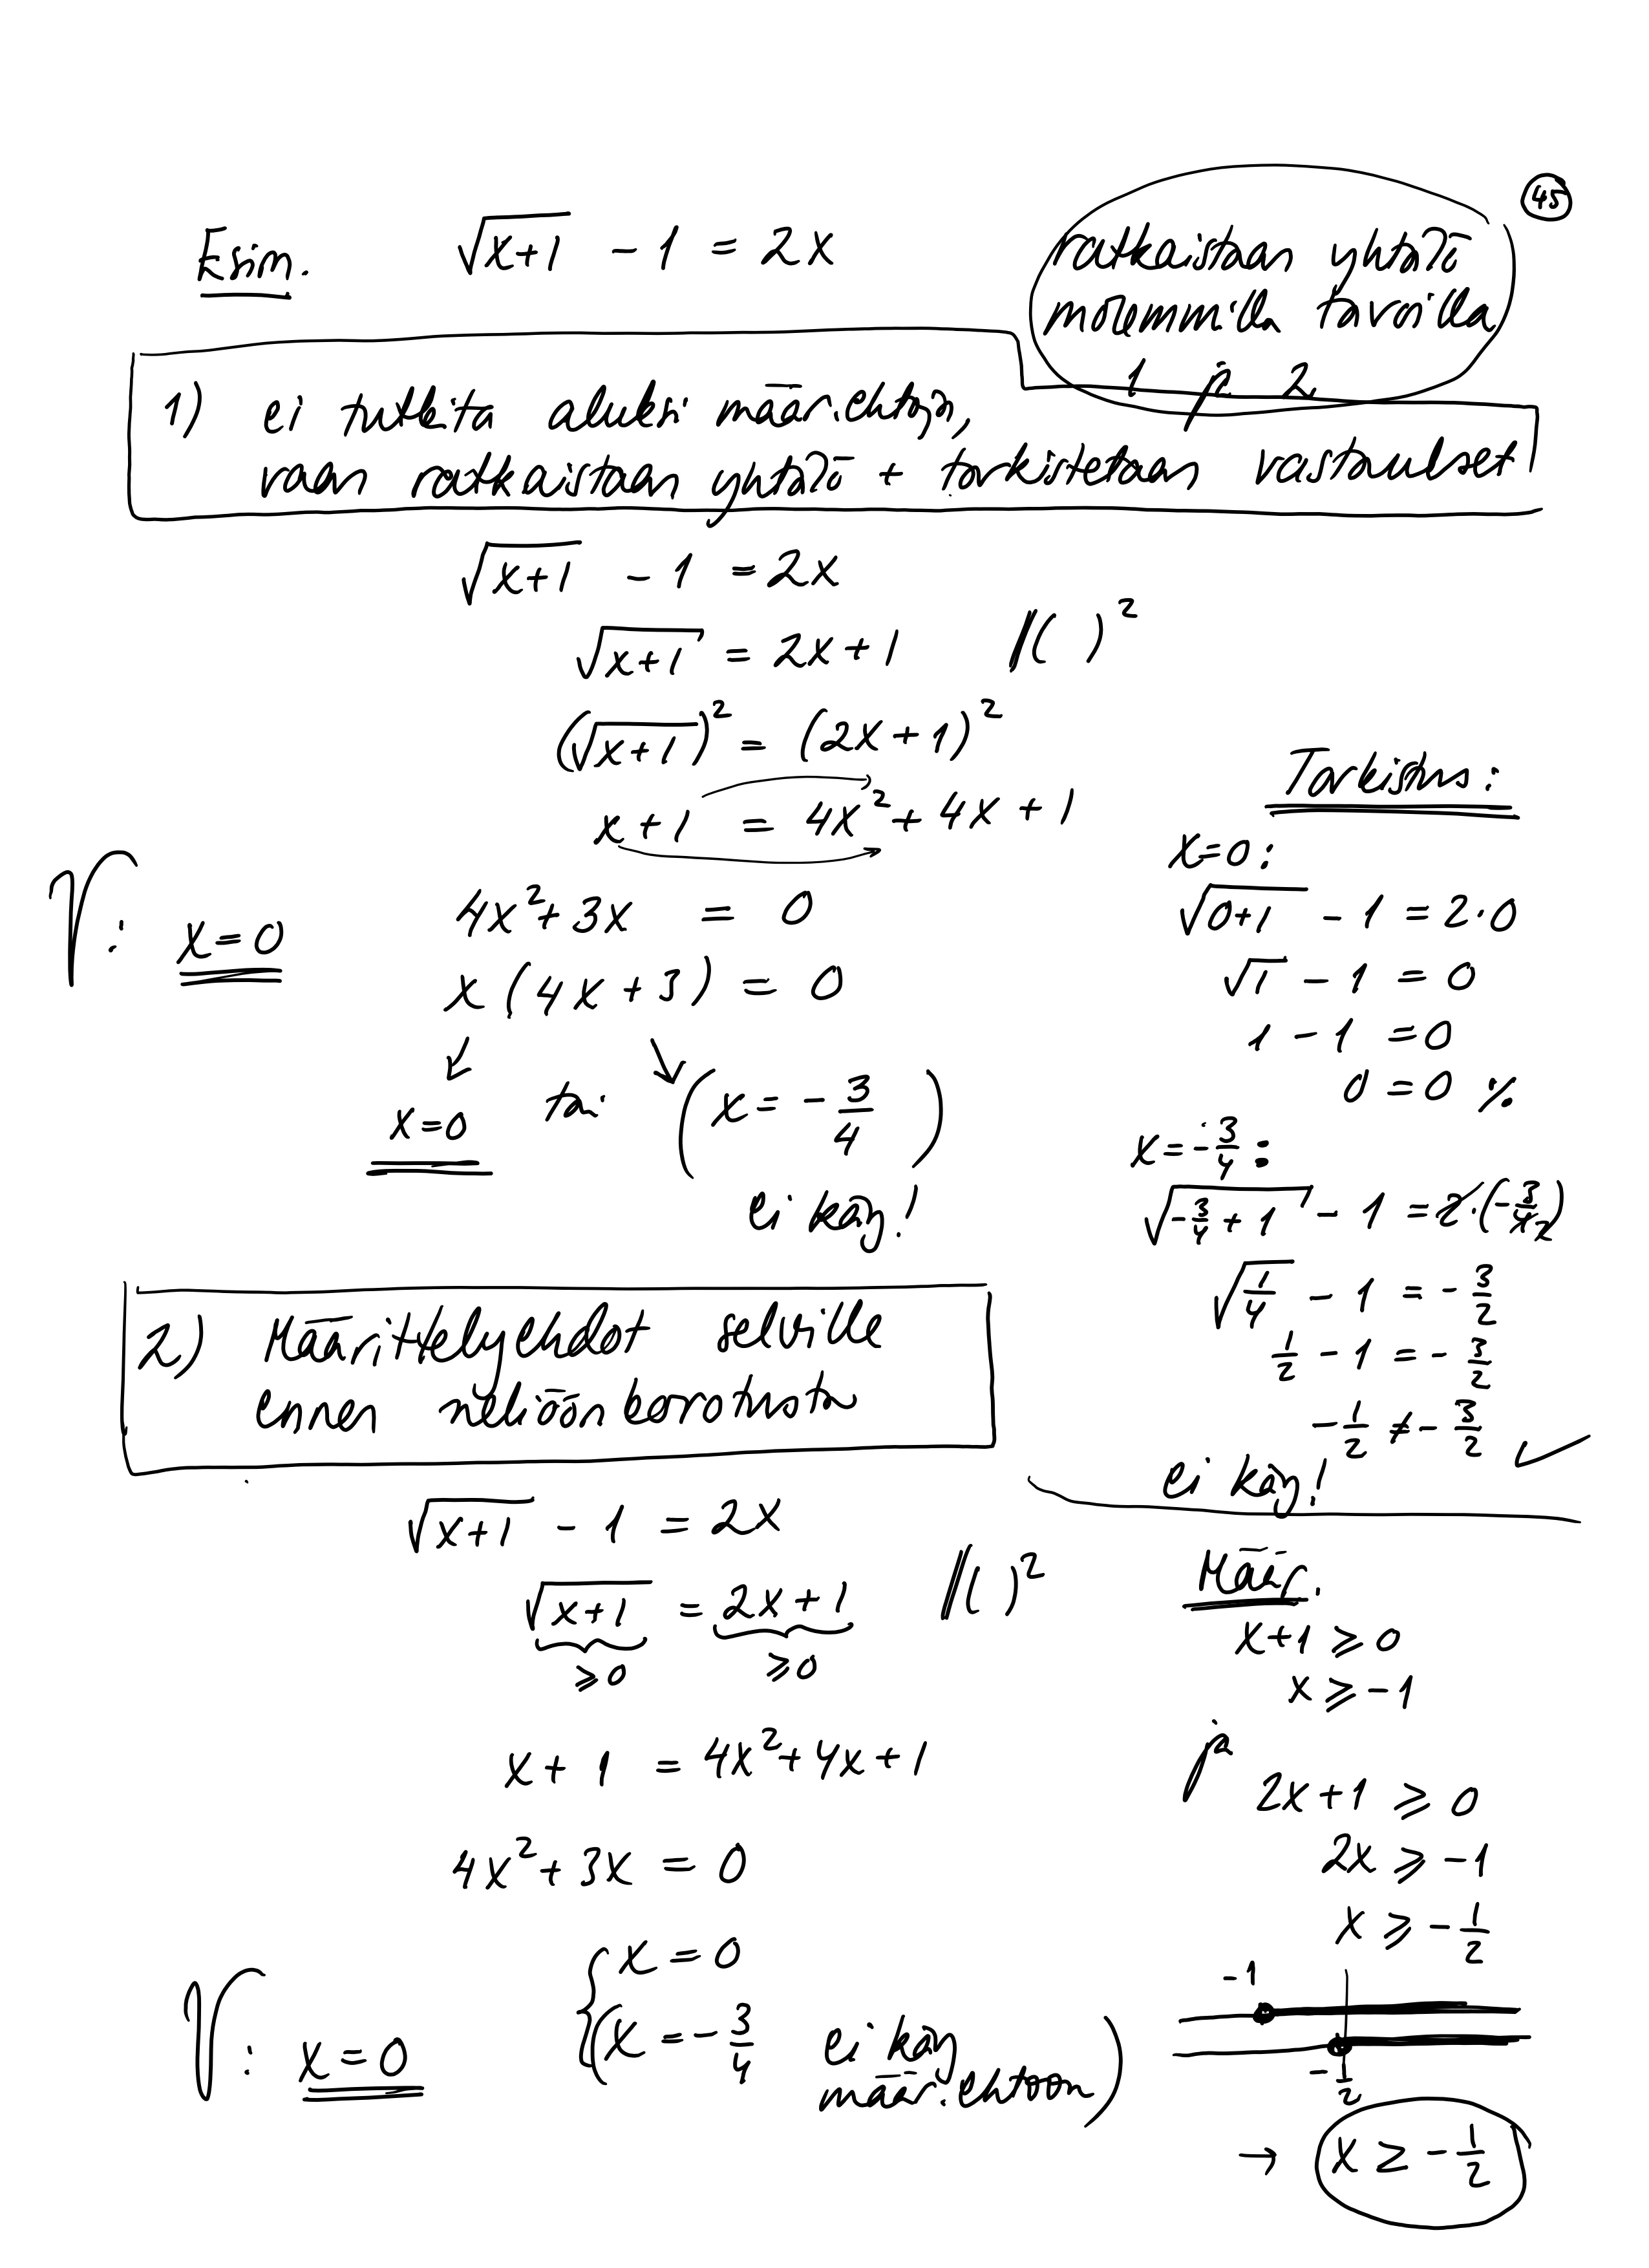 45
Esim. √(x+1) - 1 = 2x
ratkaistaan yhtälö
molemmilla tavoilla
1 ja 2
1) ei tutkita aluksi määr.ehtoja,
vaan ratkaistaan yhtälö + tarkistetaan vastaukset
√(x+1) - 1 = 2x
√(x+1) = 2x + 1 ||( )²
(√(x+1))² = (2x+1)²
x + 1 = 4x² + 4x + 1
4x² + 3x = 0
x (4x + 3) = 0
x = 0 tai (x = - 3/4)
ei käy!
V: x = 0
Tarkistus:
x=0:
√(0+1) - 1 = 2·0
√1 - 1 = 0
1 - 1 = 0
0 = 0 %
x = -3/4 :
√(-3/4 + 1) - 1 = 2·(-3/4 2)
√(1/4) - 1 = - 3/2
1/2 - 1 = - 3/2
- 1/2 ≠ - 3/2 ✓
ei käy!
2) Määrittelyehdot selville
ennen neliöönkorotusta
√(x+1) - 1 = 2x
√(x+1) = 2x + 1 ||( )²
≥0 ≥0
x + 1 = 4x² + 4x + 1
4x² + 3x = 0
{ x = 0
(x = - 3/4 ei käy
määr.ehtoon)
V: x = 0
Määr.
x+1 ≥ 0
x ≥ -1
ja
2x+1 ≥ 0
2x ≥ -1
x ≥ - 1/2
-1
- 1/2
→ x ≥ - 1/2